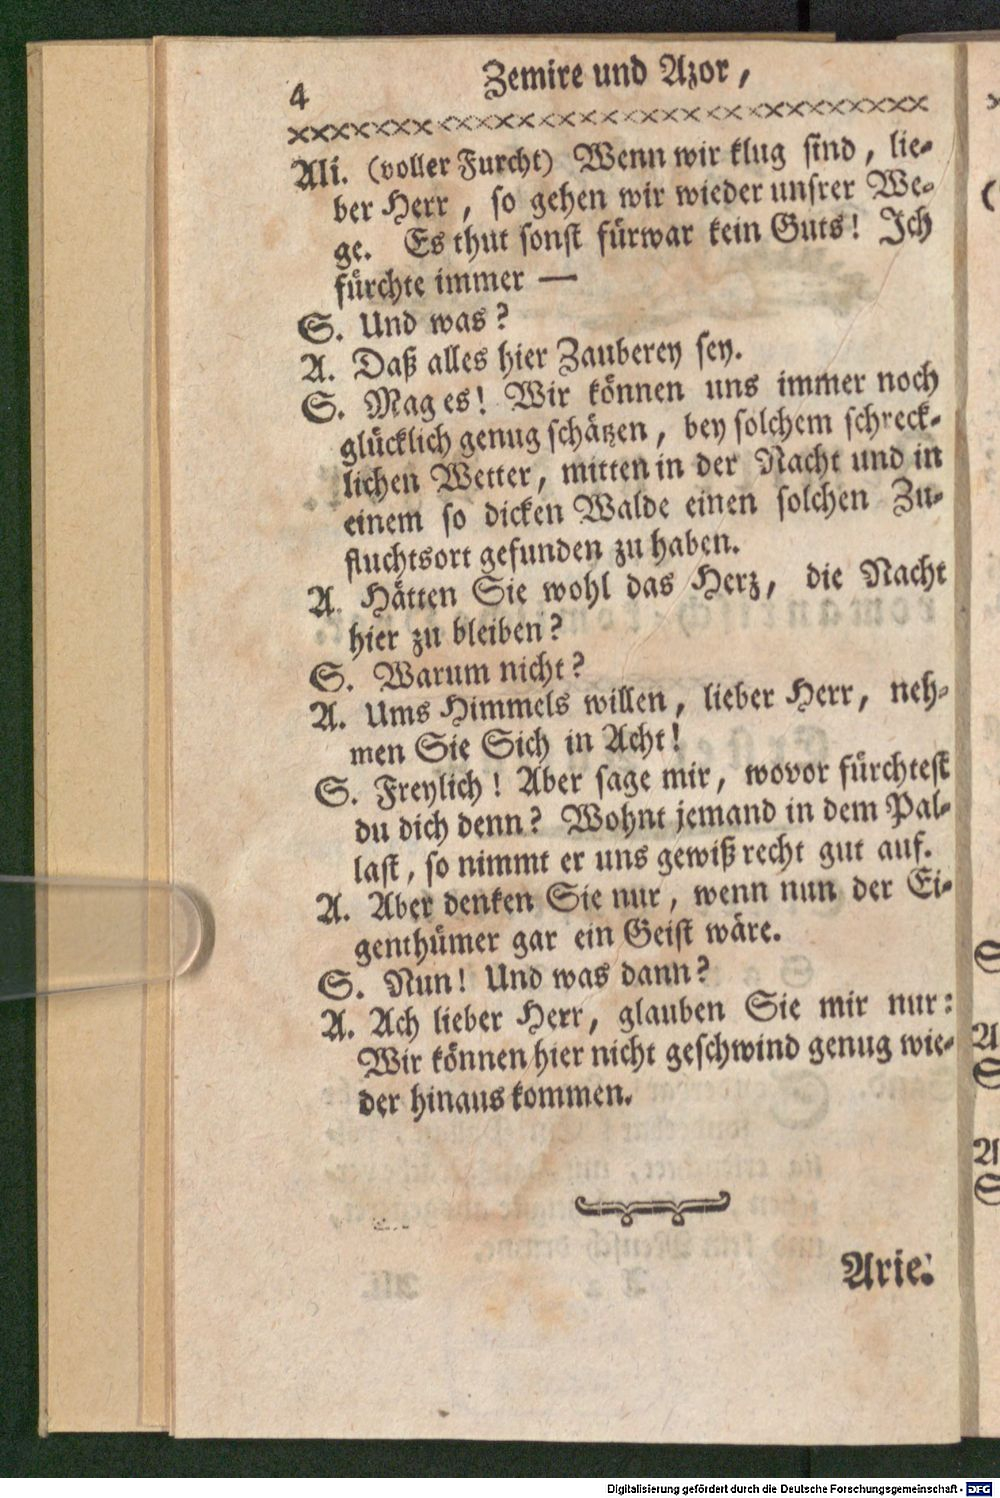 4
Zemire und Azor,
Ali. (voller Furcht) Wenn wir klug sind, lie-
ber Herr, so gehen wir wieder unsrer We-
ge. Es thut sonst fürwar kein Guts! Ich
fürchte immer —
S. Und was?
A. Daß alles hier Zauberey sey.
S. Mag es! Wir können uns immer noch
glücklich genug schätzen, bey solchem schreck-
lichen Wetter, mitten in der Nacht und in
einem so dicken Walde einen solchen Zu-
fluchtsort gefunden zu haben.
A. Hätten Sie wohl das Herz, die Nacht
hier zu bleiben?
S. Warum nicht?
A. Ums Himmels willen, lieber Herr, neh-
men Sie Sich in Acht!
S. Freylich! Aber sage mir, wovor fürchtest
du dich denn? Wohnt jemand in dem Pal-
last, so nimmt er uns gewiß recht gut auf.
A. Aber denken Sie nur, wenn nun der Ei-
genthümer gar ein Geist wäre.
S. Nun! Und was dann?
A. Ach lieber Herr, glauben Sie mir nur:
Wir können hier nicht geschwind genug wie-
der hinaus kommen.
Arie.
Digitalisierung gefördert durch die Deutsche Forschungsgemeinschaft - DFG